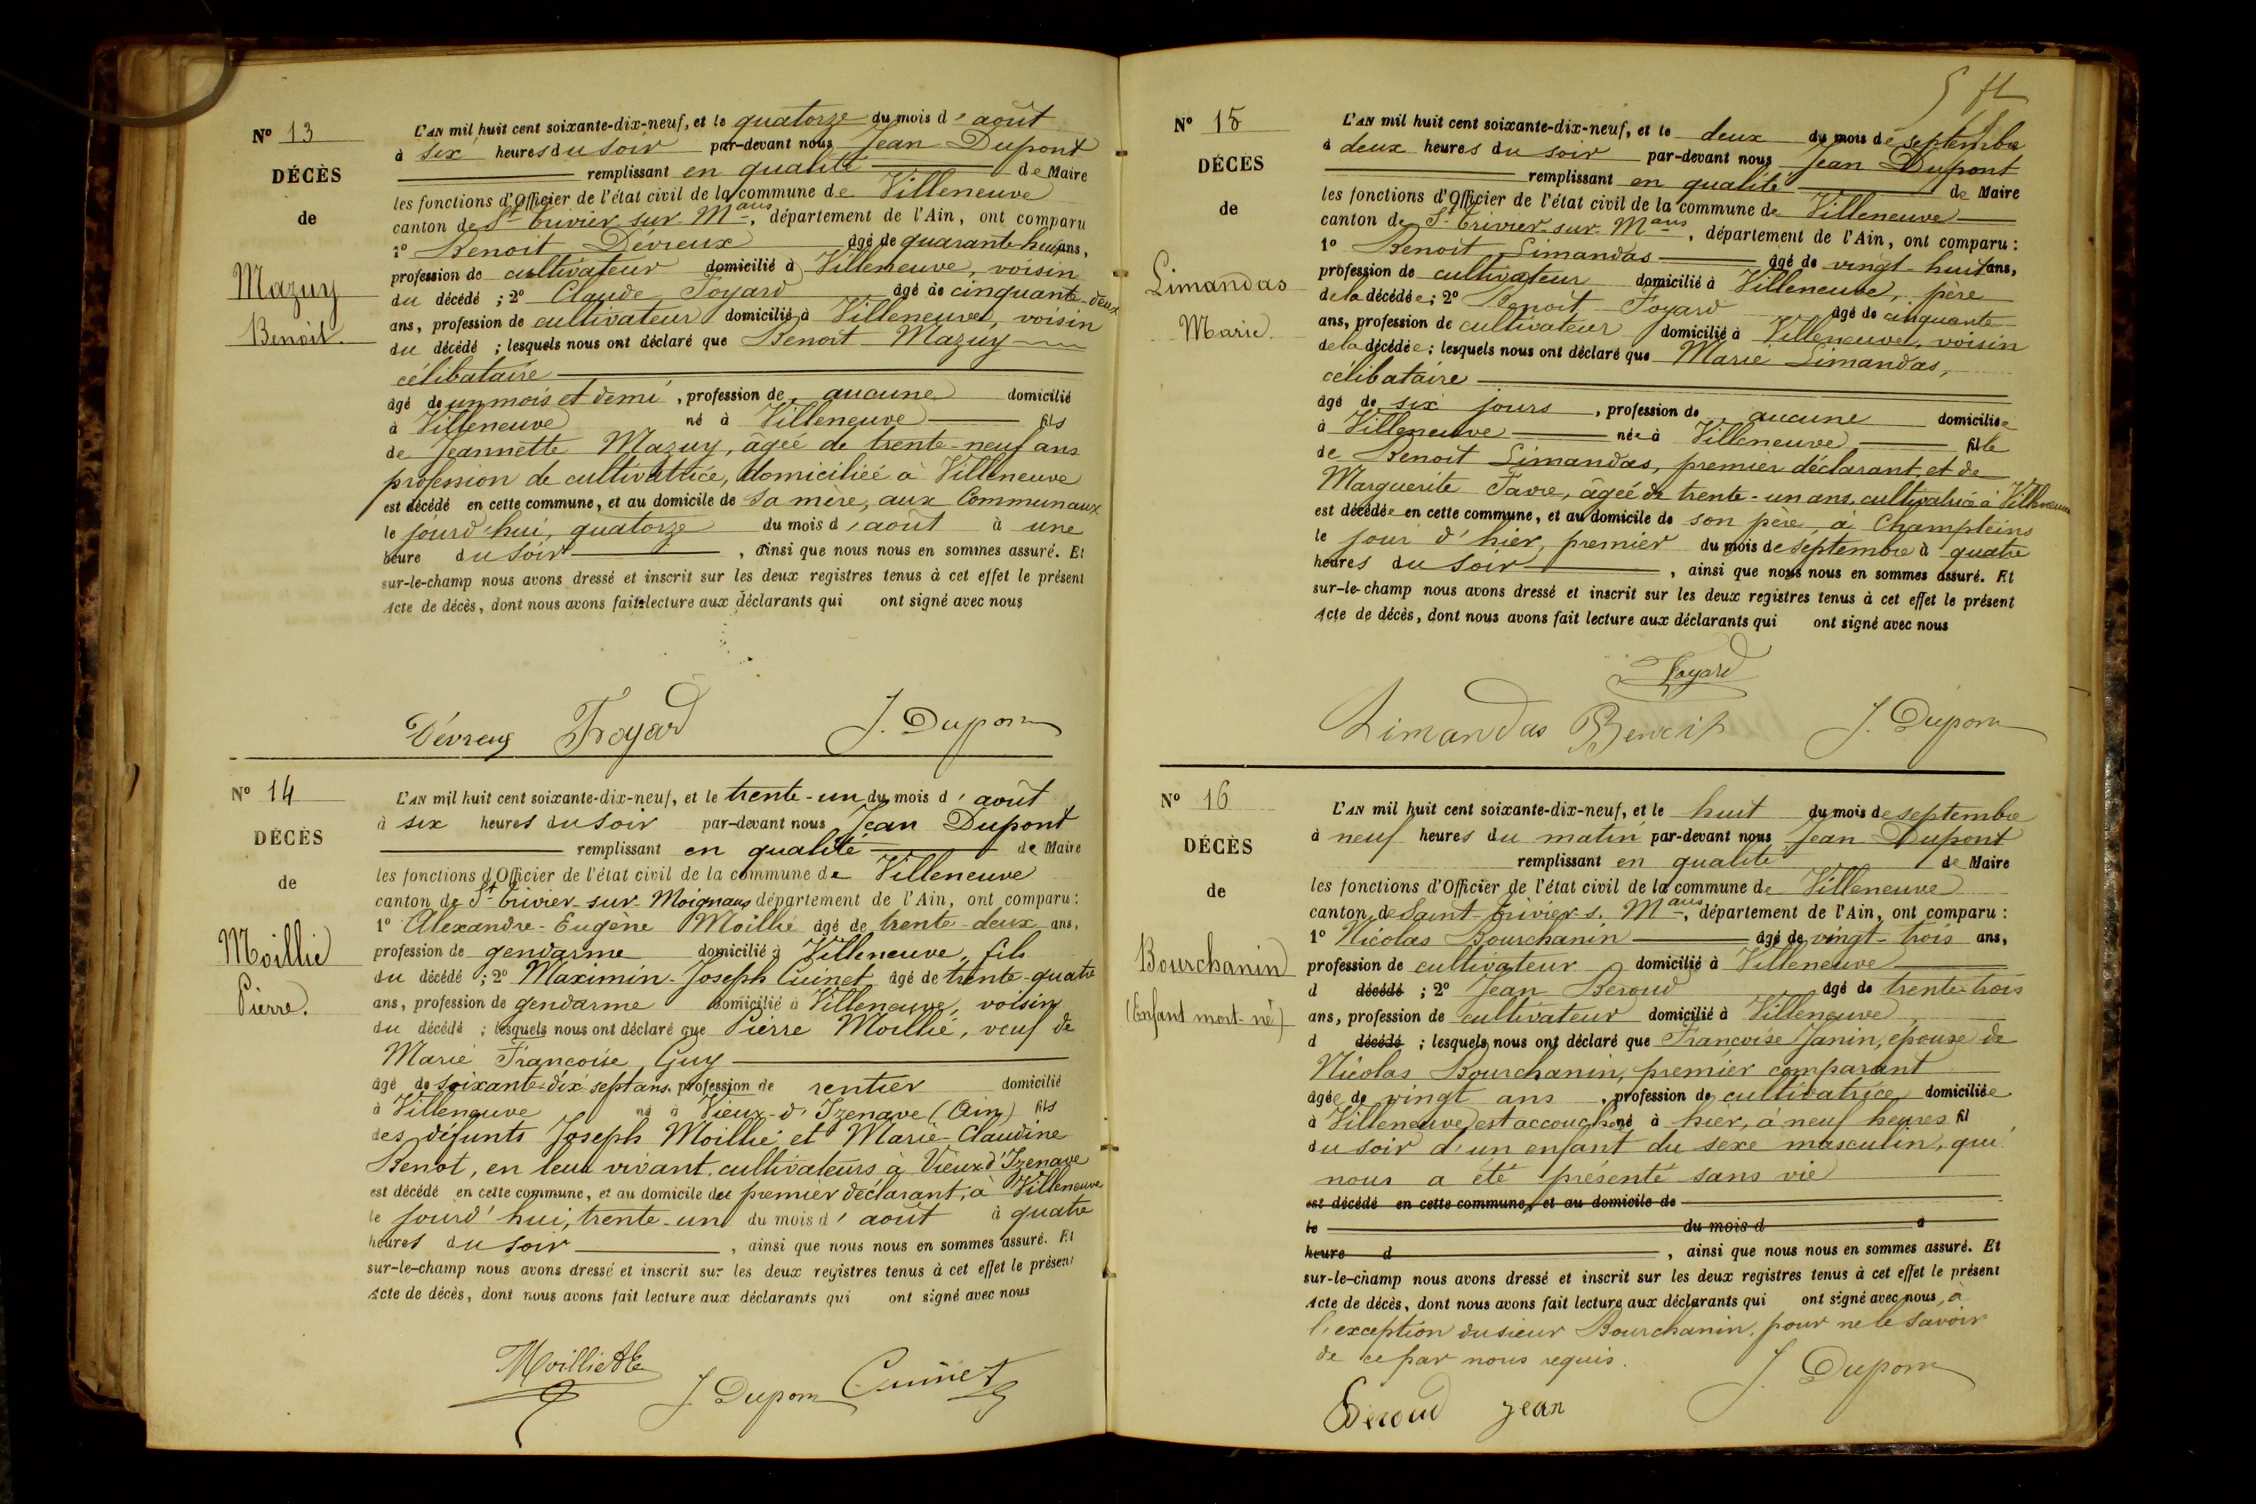 Nº 13
DÉCÈS
de
Mazuy
Benoit.
L'AN mil huit cent soixante-dix-neuf, et le quatorze du mois d'août
à six heures du soir par-devant nous Jean Dupont
remplissant en qualité de Maire
les fonctions d'Officier de l'état civil de la commune de Villeneuve
canton de St trivier sur Mans, département de l'Ain, ont comparu
1º Benoit Dévreux âgé de quarante-huit ans,
profession de cultivateur domicilié à Villeneuve, voisin
du décédé ; 2º Claude Foyard âgé de cinquante-deux
ans, profession de cultivateur domicilié à Villeneuve, voisin
du décédé ; lesquels nous ont déclaré que Benoit Mazuy
célibataire
âgé de un mois et demi, profession de aucune domicilié
à Villeneuve né à Villeneuve fils
de Jeannette Mazuy, âgée de trente-neuf ans
profession de cultivatrice, domiciliée à Villeneuve
est décédé en cette commune, et au domicile de sa mère, aux Communaux
le jourd'hui, quatorze du mois d'août à une
heure du soir, ainsi que nous nous en sommes assuré. Et
sur-le-champ nous avons dressé et inscrit sur les deux registres tenus à cet effet le présent
Acte de décès, dont nous avons fait lecture aux déclarants qui ont signé avec nous
Dévreux Foyard J. Dupont
Nº 14
DÉCÈS
de
Moillié
Pierre.
L'AN mil huit cent soixante-dix-neuf, et le trente-un du mois d'août
à six heures du soir par-devant nous Jean Dupont
remplissant en qualité de Maire
les fonctions d'Officier de l'état civil de la commune de Villeneuve
canton de St trivier-sur-Moignans département de l'Ain, ont comparu :
1º Alexandre-Eugène Moillié âgé de trente-deux ans,
profession de gendarme domicilié à Villeneuve, fils
du décédé ; 2º Maximin-Joseph Cuinet âgé de trente-quatre
ans, profession de gendarme domicilié à Villeneuve, voisin
du décédé ; lesquels nous ont déclaré que Pierre Moillié, veuf de
Marie Françoise Guy
âgé de soixante-dix-sept ans, profession de rentier domicilié
à Villeneuve né à Vieux-d'Izenave (Ain) fils
des défunts Joseph Moillié et Marie-Claudine
Benot, en leur vivant cultivateurs à Vieux d'Izenave
est décédé en cette commune, et au domicile du premier déclarant, à Villeneuve
le jourd'hui, trente-un du mois d'août à quatre
heures du soir, ainsi que nous nous en sommes assuré. Et
sur-le-champ nous avons dressé et inscrit sur les deux registres tenus à cet effet le présent
Acte de décès, dont nous avons fait lecture aux déclarants qui ont signé avec nous
Moillié AE J. Dupont Cuinet
Nº 15
DÉCÈS
de
Limandas
Marie.
L'AN mil huit cent soixante-dix-neuf, et le deux du mois de septembre
à deux heures du soir par-devant nous Jean Dupont
remplissant en qualité de Maire
les fonctions d'Officier de l'état civil de la commune de Villeneuve
canton de St trivier-sur-Mans, département de l'Ain, ont comparu :
1º Benoit Limandas âgé de vingt-huit ans,
profession de cultivateur domicilié à Villeneuve, père
de la décédée ; 2º Benoit Foyard âgé de cinquante
ans, profession de cultivateur domicilié à Villeneuve, voisin
de la décédée ; lesquels nous ont déclaré que Marie Limandas,
célibataire
âgé de six jours, profession de aucune domiciliée
à Villeneuve née à Villeneuve fille
de Benoit Limandas, premier déclarant et de
Marguerite Favre, âgée de trente-un ans, cultivatrice à Villeneuve
est décédée en cette commune, et au domicile de son père, à Champleins
le jour d'hier, premier du mois de septembre à quatre
heures du soir, ainsi que nous nous en sommes assuré. Et
sur-le-champ nous avons dressé et inscrit sur les deux registres tenus à cet effet le présent
Acte de décès, dont nous avons fait lecture aux déclarants qui ont signé avec nous
Foyard
Limandas Benoit J. Dupont
Nº 16
DÉCÈS
de
Bourchanin
(Enfant mort-né)
L'AN mil huit cent soixante-dix-neuf, et le huit du mois de septembre
à neuf heures du matin par-devant nous Jean Dupont
remplissant en qualité de Maire
les fonctions d'Officier de l'état civil de la commune de Villeneuve
canton de Saint-trivier-s. Mans, département de l'Ain, ont comparu :
1º Nicolas Bourchanin âgé de vingt-trois ans,
profession de cultivateur domicilié à Villeneuve
d décédé ; 2º Jean Beroud âgé de trente-trois
ans, profession de cultivateur domicilié à Villeneuve
d décédé ; lesquels nous ont déclaré que Françoise Janin, épouse de
Nicolas Bourchanin, premier comparant
âgée de vingt ans, profession de cultivatrice domiciliée
à Villeneuve est accouchée né à hier, à neuf heures fil
du soir d'un enfant du sexe masculin, qui
nous a été présenté sans vie
est décédé en cette commune, et au domicile de
le du mois d à
heure d, ainsi que nous nous en sommes assuré. Et
sur-le-champ nous avons dressé et inscrit sur les deux registres tenus à cet effet le présent
Acte de décès, dont nous avons fait lecture aux déclarants qui ont signé avec nous, à
l'exception du sieur Bourchanin, pour ne le savoir
de ce par nous requis.
J. Dupont
Beroud Jean